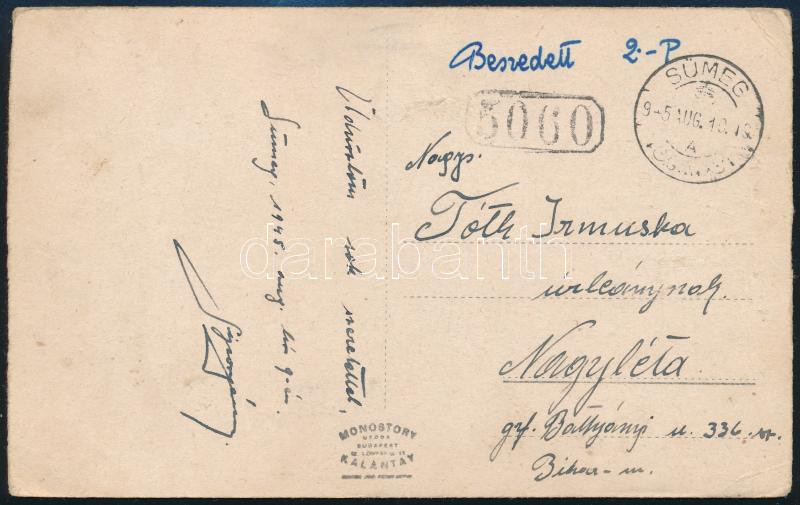 Beszedett 2.-P
SÜMEG
5060
Nagys.
Tóth Irmuska
úrleánynak
Nagyléta
gf. Batthyányi u. 336. sz.
Bihar-m.
Üdvözlöm sok szeretettel,
Sümeg, 1945. aug. hó 9-én
MONOSTORY
UTÓDA
BUDAPEST
KALANTAY
darabanth